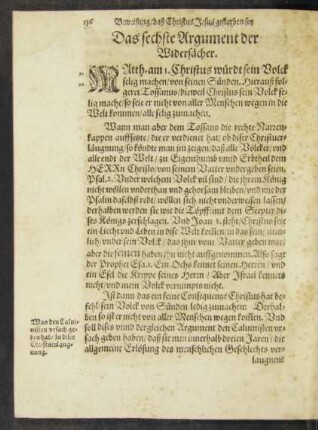 Beweisung/daß Christus Jesus gestorben sey
Das sechste Argument der
Widersächer.
MAtth. am 1. Christus würdt sein Volck
selig machen/von seinen Sünden. Hierauß fol-
geret Tossanus/dieweil Christus sein Volck se-
lig mache/so seie er nicht von aller Menschen wegen in die
Welt kommen/alle selig zumachen.
Wann man aber dem Tossano die rechte Narren-
kappen auffsetzte/die er verdienet hat/ob diser Christuser-
läugnung/so köndte man jm zeigen/daß alle Völcker/und
alle endt der Welt/zu Eigenthumb unnd Erbtheil dem
HERRn Christo/von seinem Vatter undergeben seien/
Psal.2. Under welchem Volck vil sind/die jhrem König
nicht wöllen underthan und gehorsam bleiben/und wie der
Psalm daselbst redt/wöllen sich nicht underweisen lassen/
derhalben werden sie wie die Töpff mit dem Scepter dises
Königs zerschlagen. Und Joan 1. steht/Christus seie
ein Liecht und Leben in dise Welt kommen/in das sein/nem-
lich/under sein Volck/das jhm vom Vatter geben war/
aber die seinen haben jhn nicht auffgenommen. Also sagt
der Prophet Esa.1. Ein Ochs kennet seinen Herren/und
ein Esel die Krippe seines Herrn/Aber Israel kennets
nicht/und mein Volck vernimpts nicht.
Ist dann das ein feine Consequens/Christus hat be-
sehl sein Volck von Sünden ledig zumachen: Derhal-
ben so ist er nicht von aller Menschen wegen kommen. Und
soll dises unnd dergleichen Argument den Calvinisten ur-
sach geben haben/daß sie nun innerhalb dreien Jaren/die
allgemeine Erlösung des menschlichen Geschlechts ver-
laugnens
Was den Calui-
nisten vrsach ge-
ben hab/zu diser